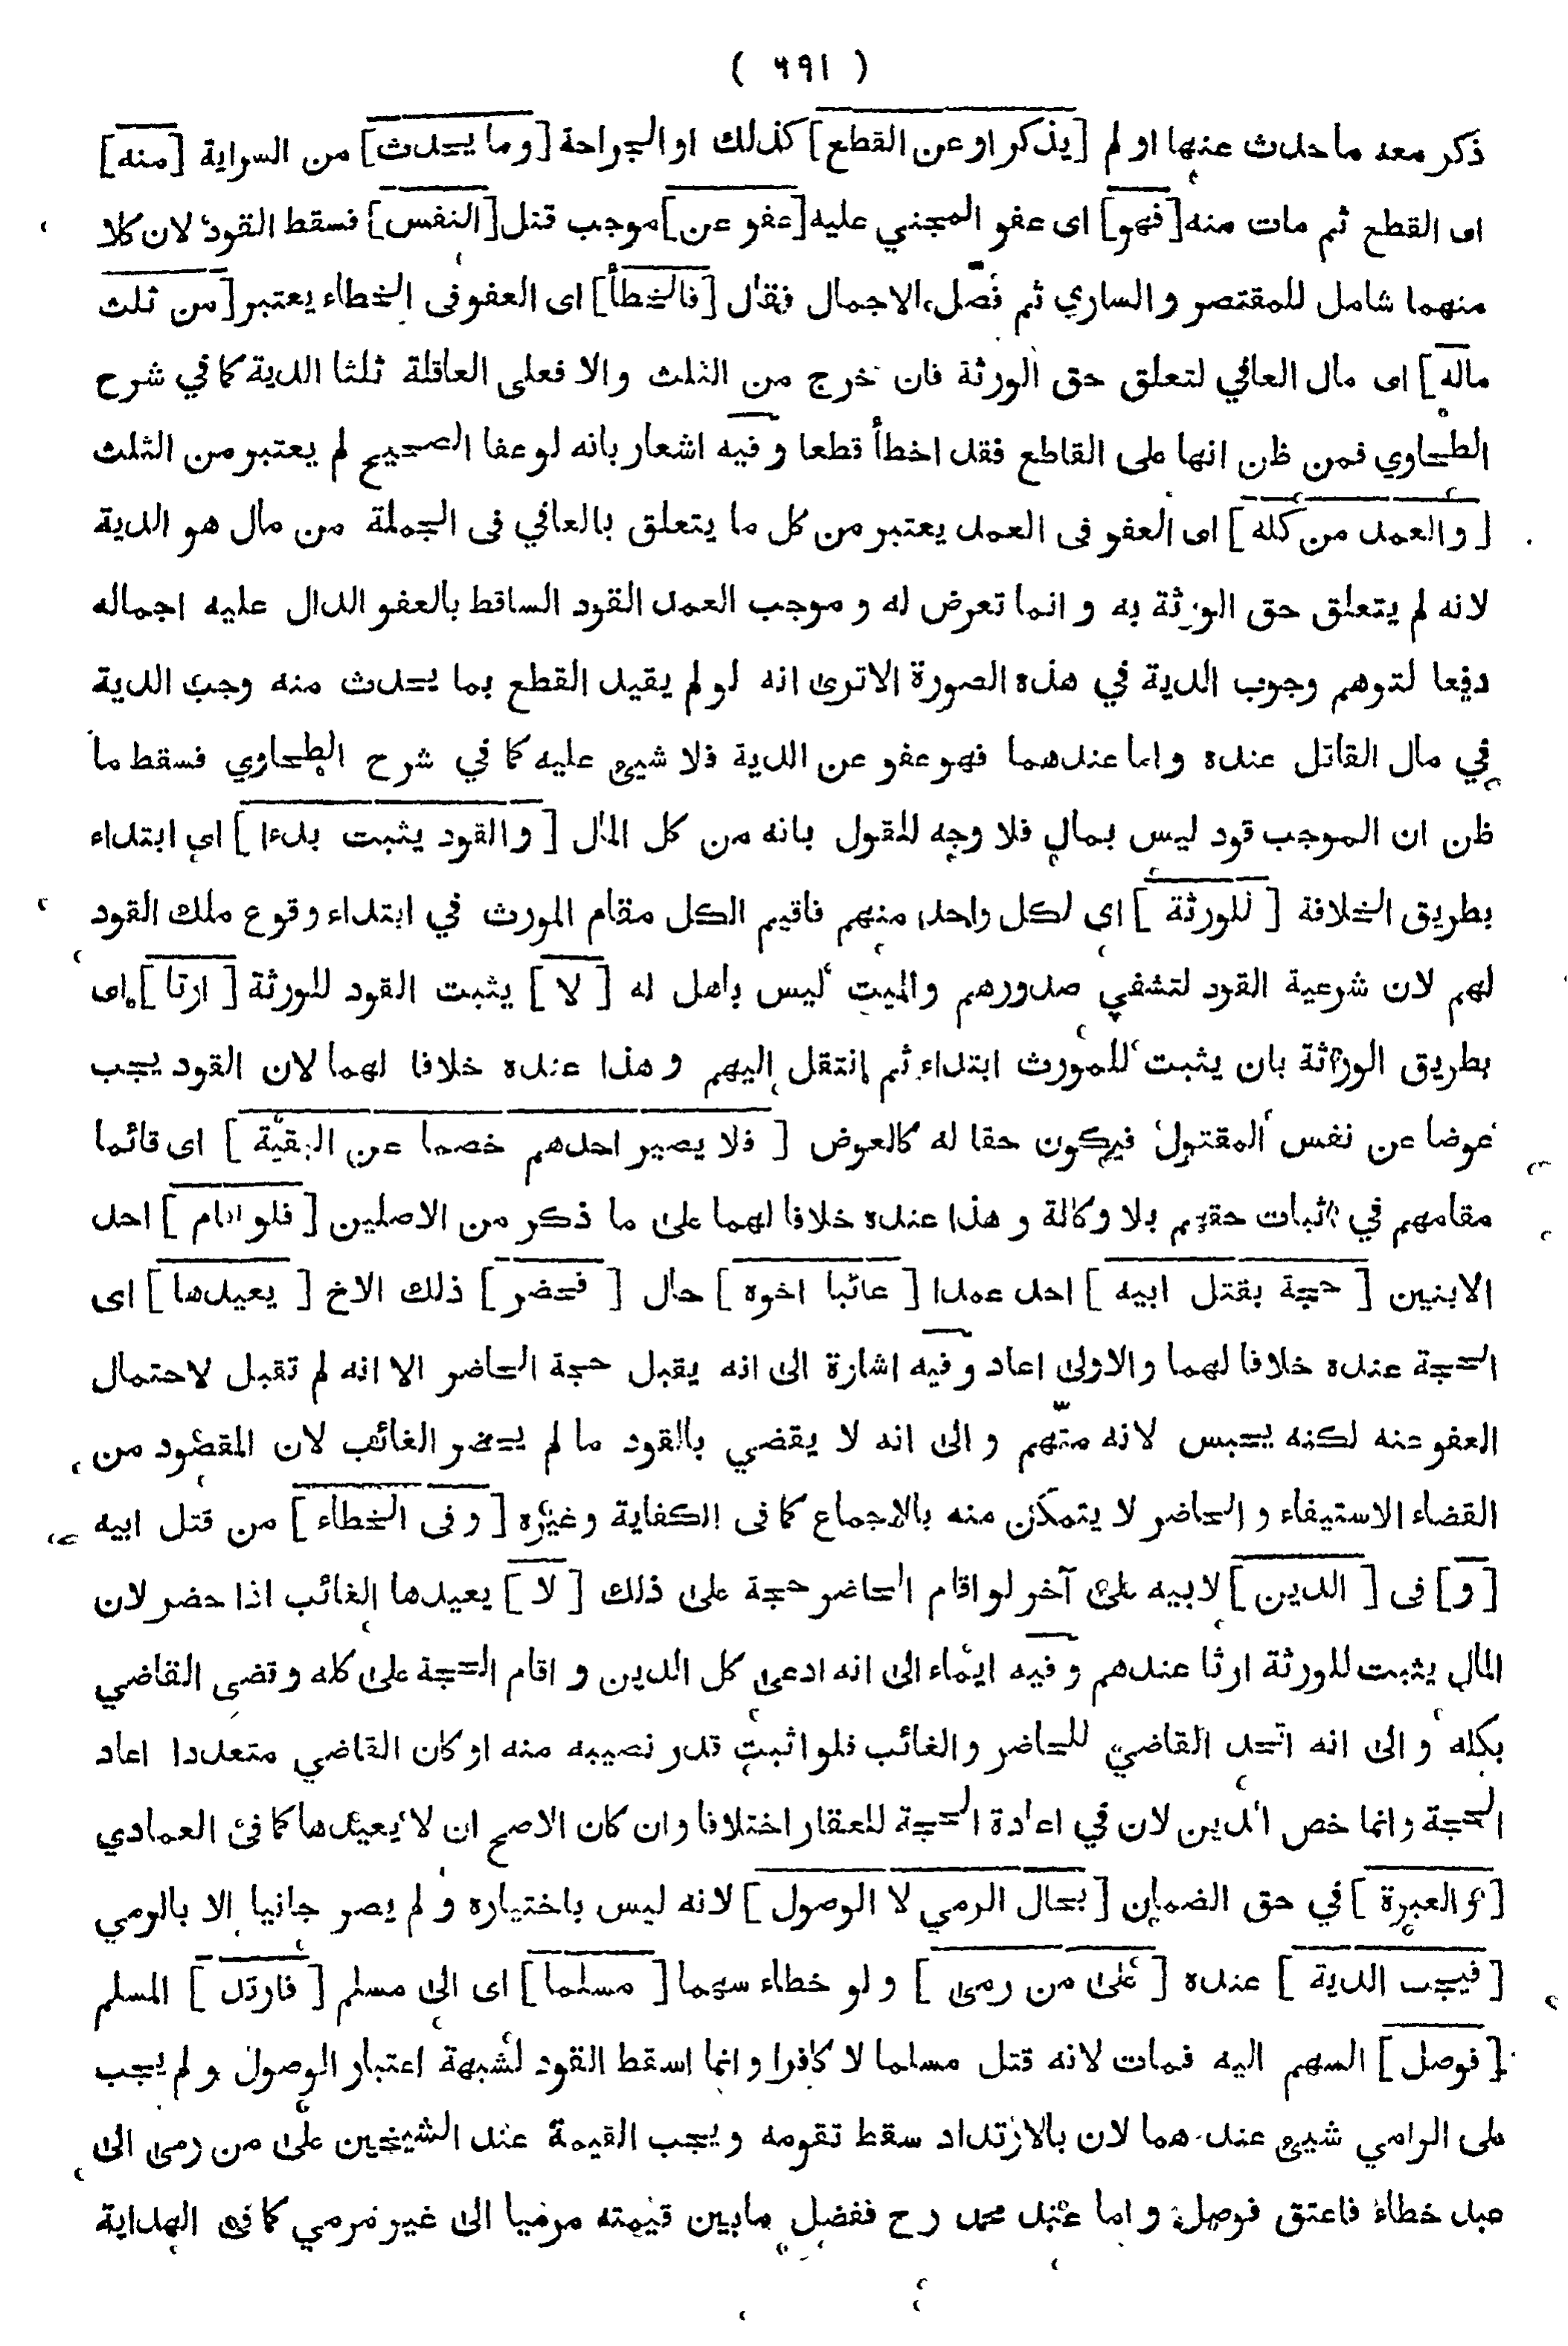 ( ٦٩١ )
ذكر معه ما حدث عنها او لم [يذكر او عن القطع] كذلك او الجراحة [وما يحدث] من السراية [منه]
اى القطع ثم مات منه [فهو] اى عفو المجني عليه [عفو عن] موجب قتل [النفس] فسقط القود لان كلا
منهما شامل للمقتصر والساري ثم فصل الاجمال فقال [فالخطأ] اى العفو فى الخطاء يعتبر [من ثلث
ماله] اى مال العافي لتعلق حق الورثة فان خرج من الثلث والا فعلى العاقلة ثلثا الدية كما في شرح
الطحاوي فمن ظن انها على القاطع فقد اخطأ قطعا وفيه اشعار بانه لو عفا الصحيح لم يعتبر من الثلث
[والعمد من كله] اى العفو فى العمد يعتبر من كل ما يتعلق بالعافي فى الجملة من مال هو الدية
لانه لم يتعلق حق الورثة به و انما تعرض له و موجب العمد القود الساقط بالعفو الدال عليه اجماله
دفعا لتوهم وجوب الدية في هذه الصورة الاترى انه لو لم يقيد القطع بما يحدث منه وجب الدية
في مال القاتل عنده واما عندهما فهو عفو عن الدية فلا شيئ عليه كما في شرح الطحاوي فسقط ما
ظن ان الموجب قود ليس بمال فلا وجه للقول بانه من كل المال [والقود يثبت بدءا] اى ابتداء
بطريق الخلافة [للورثة] اى لكل واحد منهم فاقيم الكل مقام المورث في ابتداء وقوع ملك القود
لهم لان شرعية القود لتشفي صدورهم والميت ليس باهل له [لا] يثبت القود للورثة [ارثا] اى
بطريق الوراثة بان يثبت للمورث ابتداء ثم انتقل اليهم وهذا عنده خلافا لهما لان القود يجب
عوضا عن نفس المقتول فيكون حقا له كالعوض [فلا يصير احدهم خصما عن البقية] اى قائما
مقامهم في اثبات حقهم بلا وكالة و هذا عنده خلافا لهما على ما ذكر من الاصلين [فلو اقام] احد
الابنين [حجة بقتل ابيه] احد عمدا [غائبا اخوه] حال [فحضر] ذلك الاخ [يعيدها] اى
الحجة عنده خلافا لهما والاولى اعاد وفيه اشارة الى انه يقبل حجة الحاضر الا انه لم تقبل لاحتمال
العفو عنه لكنه يحبس لانه متهم و الى انه لا يقضي بالقود ما لم يحضر الغائب لان المقصود من
القضاء الاستيفاء و الحاضر لا يتمكن منه بالاجماع كما فى الكفاية وغيره [وفى الخطاء] من قتل ابيه
[و] فى [الدين] لابيه على آخر لو اقام الحاضر حجة على ذلك [لا] يعيدها الغائب اذا حضر لان
المال يثبت للورثة ارثا عندهم وفيه ايماء الى انه ادعى كل الدين و اقام الحجة على كله وقضى القاضي
بكله و الى انه اتحد القاضي للحاضر والغائب فلو اثبت قدر نصيبه منه او كان القاضي متعددا اعاد
الحجة وانما خص الدين لان في اعادة الحجة للعقار اختلافا وان كان الاصح ان لا يعيدها كما فى العمادي
[والعبرة] في حق الضمان [بحال الرمي لا الوصول] لانه ليس باختياره و لم يصر جانيا الا بالرمي
[فيجب الدية] عنده [على من رمى] و لو خطاء سهما [مسلما] اى الى مسلم [فارتد] المسلم
[فوصل] السهم اليه فمات لانه قتل مسلما لا كافرا وانما اسقط القود لشبهة اعتبار الوصول و لم يجب
على الرامي شيئ عندهما لان بالارتداد سقط تقومه ويجب القيمة عند الشيخين على من رمى الى
عبد خطاء فاعتق فوصل و اما عند محمد رح ففضل ما بين قيمته مرميا الى غير مرمي كما فى الهداية